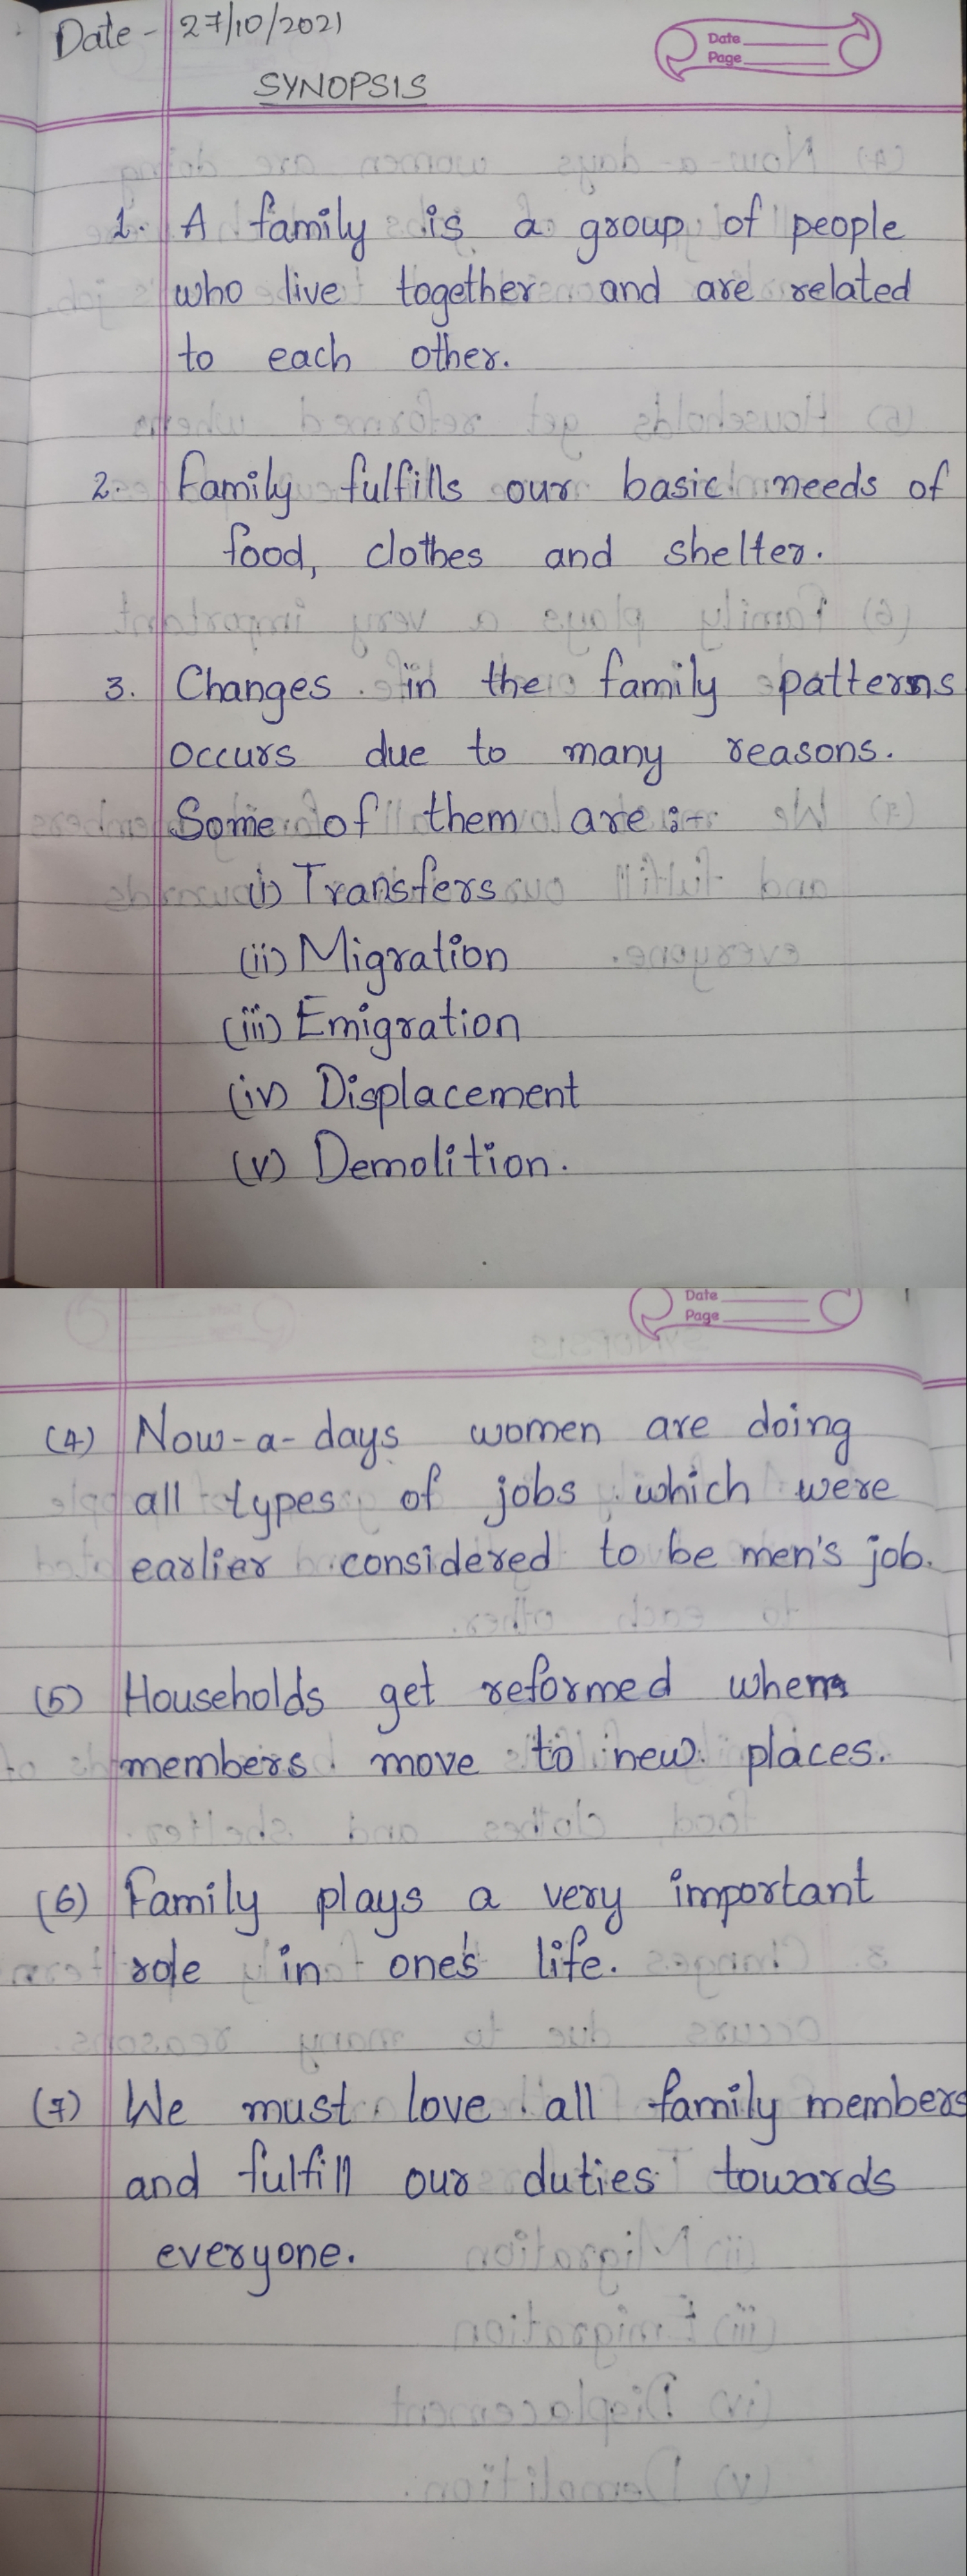 Date - 27/10/2021
Date
Page
SYNOPSIS
1. A family is a group of people
who live together and are related
to each other.
2. Family fulfills our basic needs of
food, clothes and shelter.
3. Changes in the family patterns
occurs due to many reasons.
Some of them are :-
(i) Transfers
(ii) Migration
(iii) Emigration
(iv) Displacement
(v) Demolition.
Date
Page
(4) Now-a-days women are doing
all types of jobs which were
earlier considered to be men's job.
(5) Households get reformed when
members move to new places.
(6) Family plays a very important
role in one's life.
(7) We must love all family members
and fulfill our duties towards
everyone.